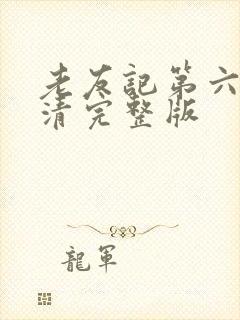 老友記第六
清完整版
龍軍